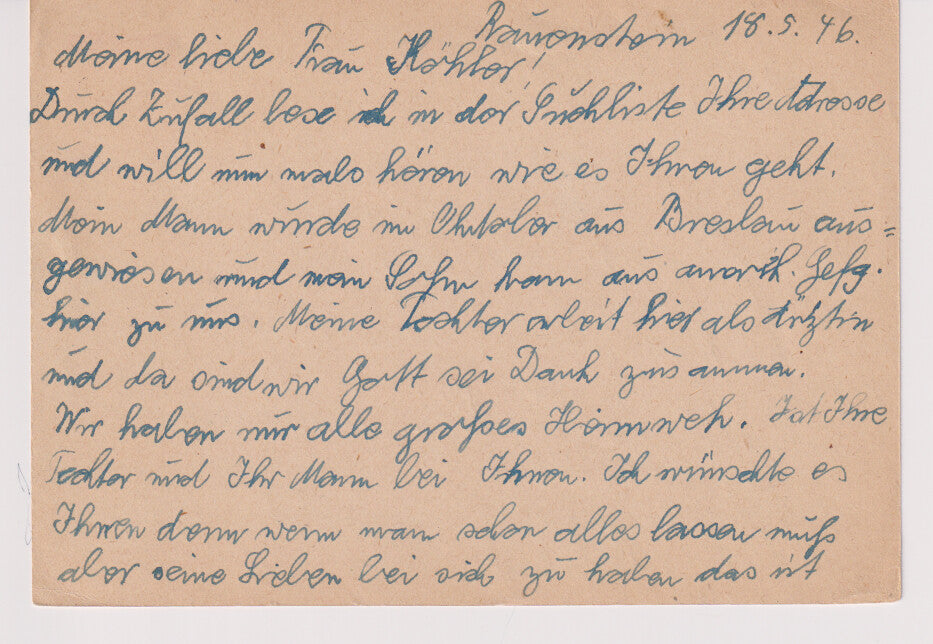 Rauenstein 18.5.46.
Meine liebe Frau Köhler!
Durch Zufall lese ich in der Suchliste Ihre Adresse
und will nun mals hören wie es Ihnen geht.
Mein Mann wurde im Oktober aus Breslau aus=
gewiesen und mein Sohn kam aus amerik. Gefg.
hier zu uns. Meine Tochter arbeit hier als Ärztin
und da sind wir Gott sei Dank zusammen.
Wir haben nur alle großes Heimweh. Ist Ihre
Tochter und Ihr Mann bei Ihnen. Ich wünschte es
Ihnen denn wenn man schon alles lassen muß
aber seine Lieben bei sich zu haben das ist